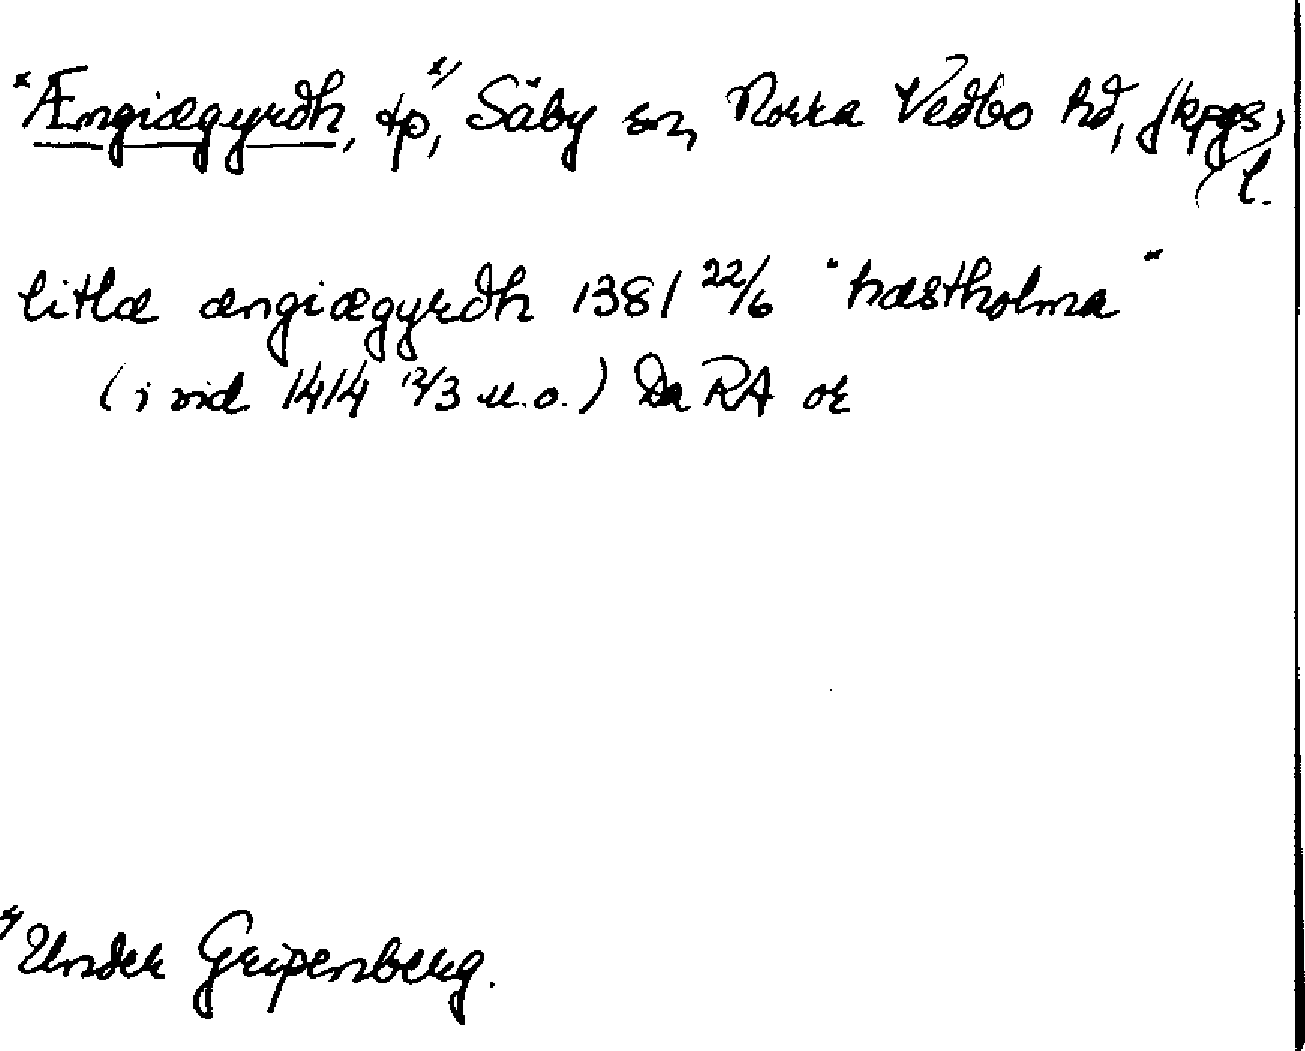 *Ængiægyrdh, tp,ˣ⁾ Säby sn, Norra Vedbo hd, Jkpgs
l.
litlæ ængiægyrdh 1381 22/6 "hæstholma"
(i vid 1414 12/3 u.o.) Da RA or
ˣ⁾ Under Gripenberg.